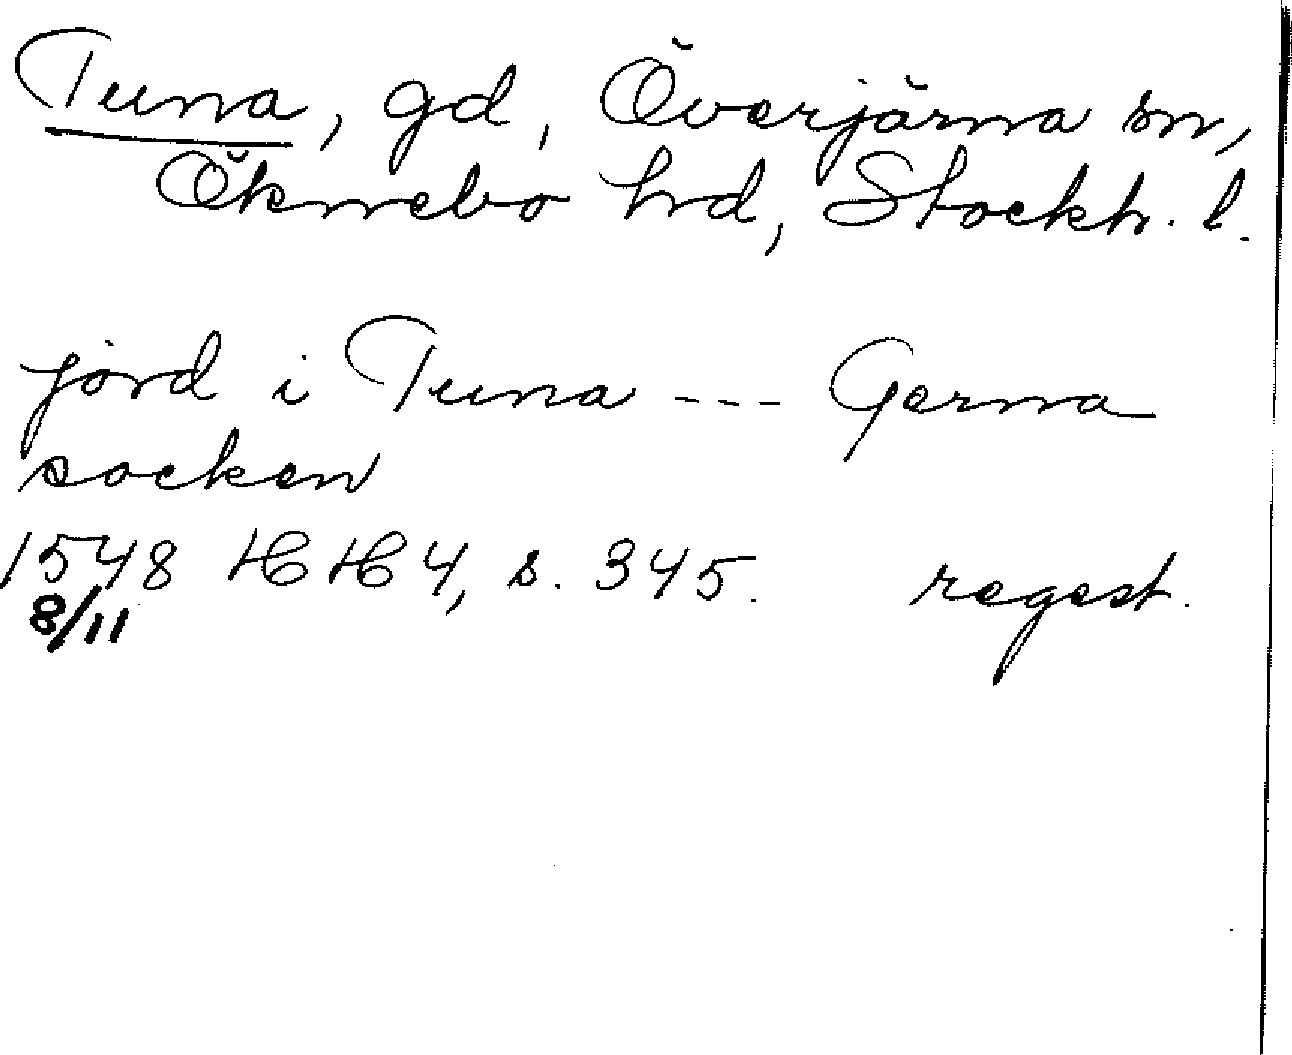 Tuna, gd, Överjärna sn,
Öknebo hd, Stockh. l.
jord i Tuna --- Gerna
socken
1548 HH 4, s. 345. regest.
8/11